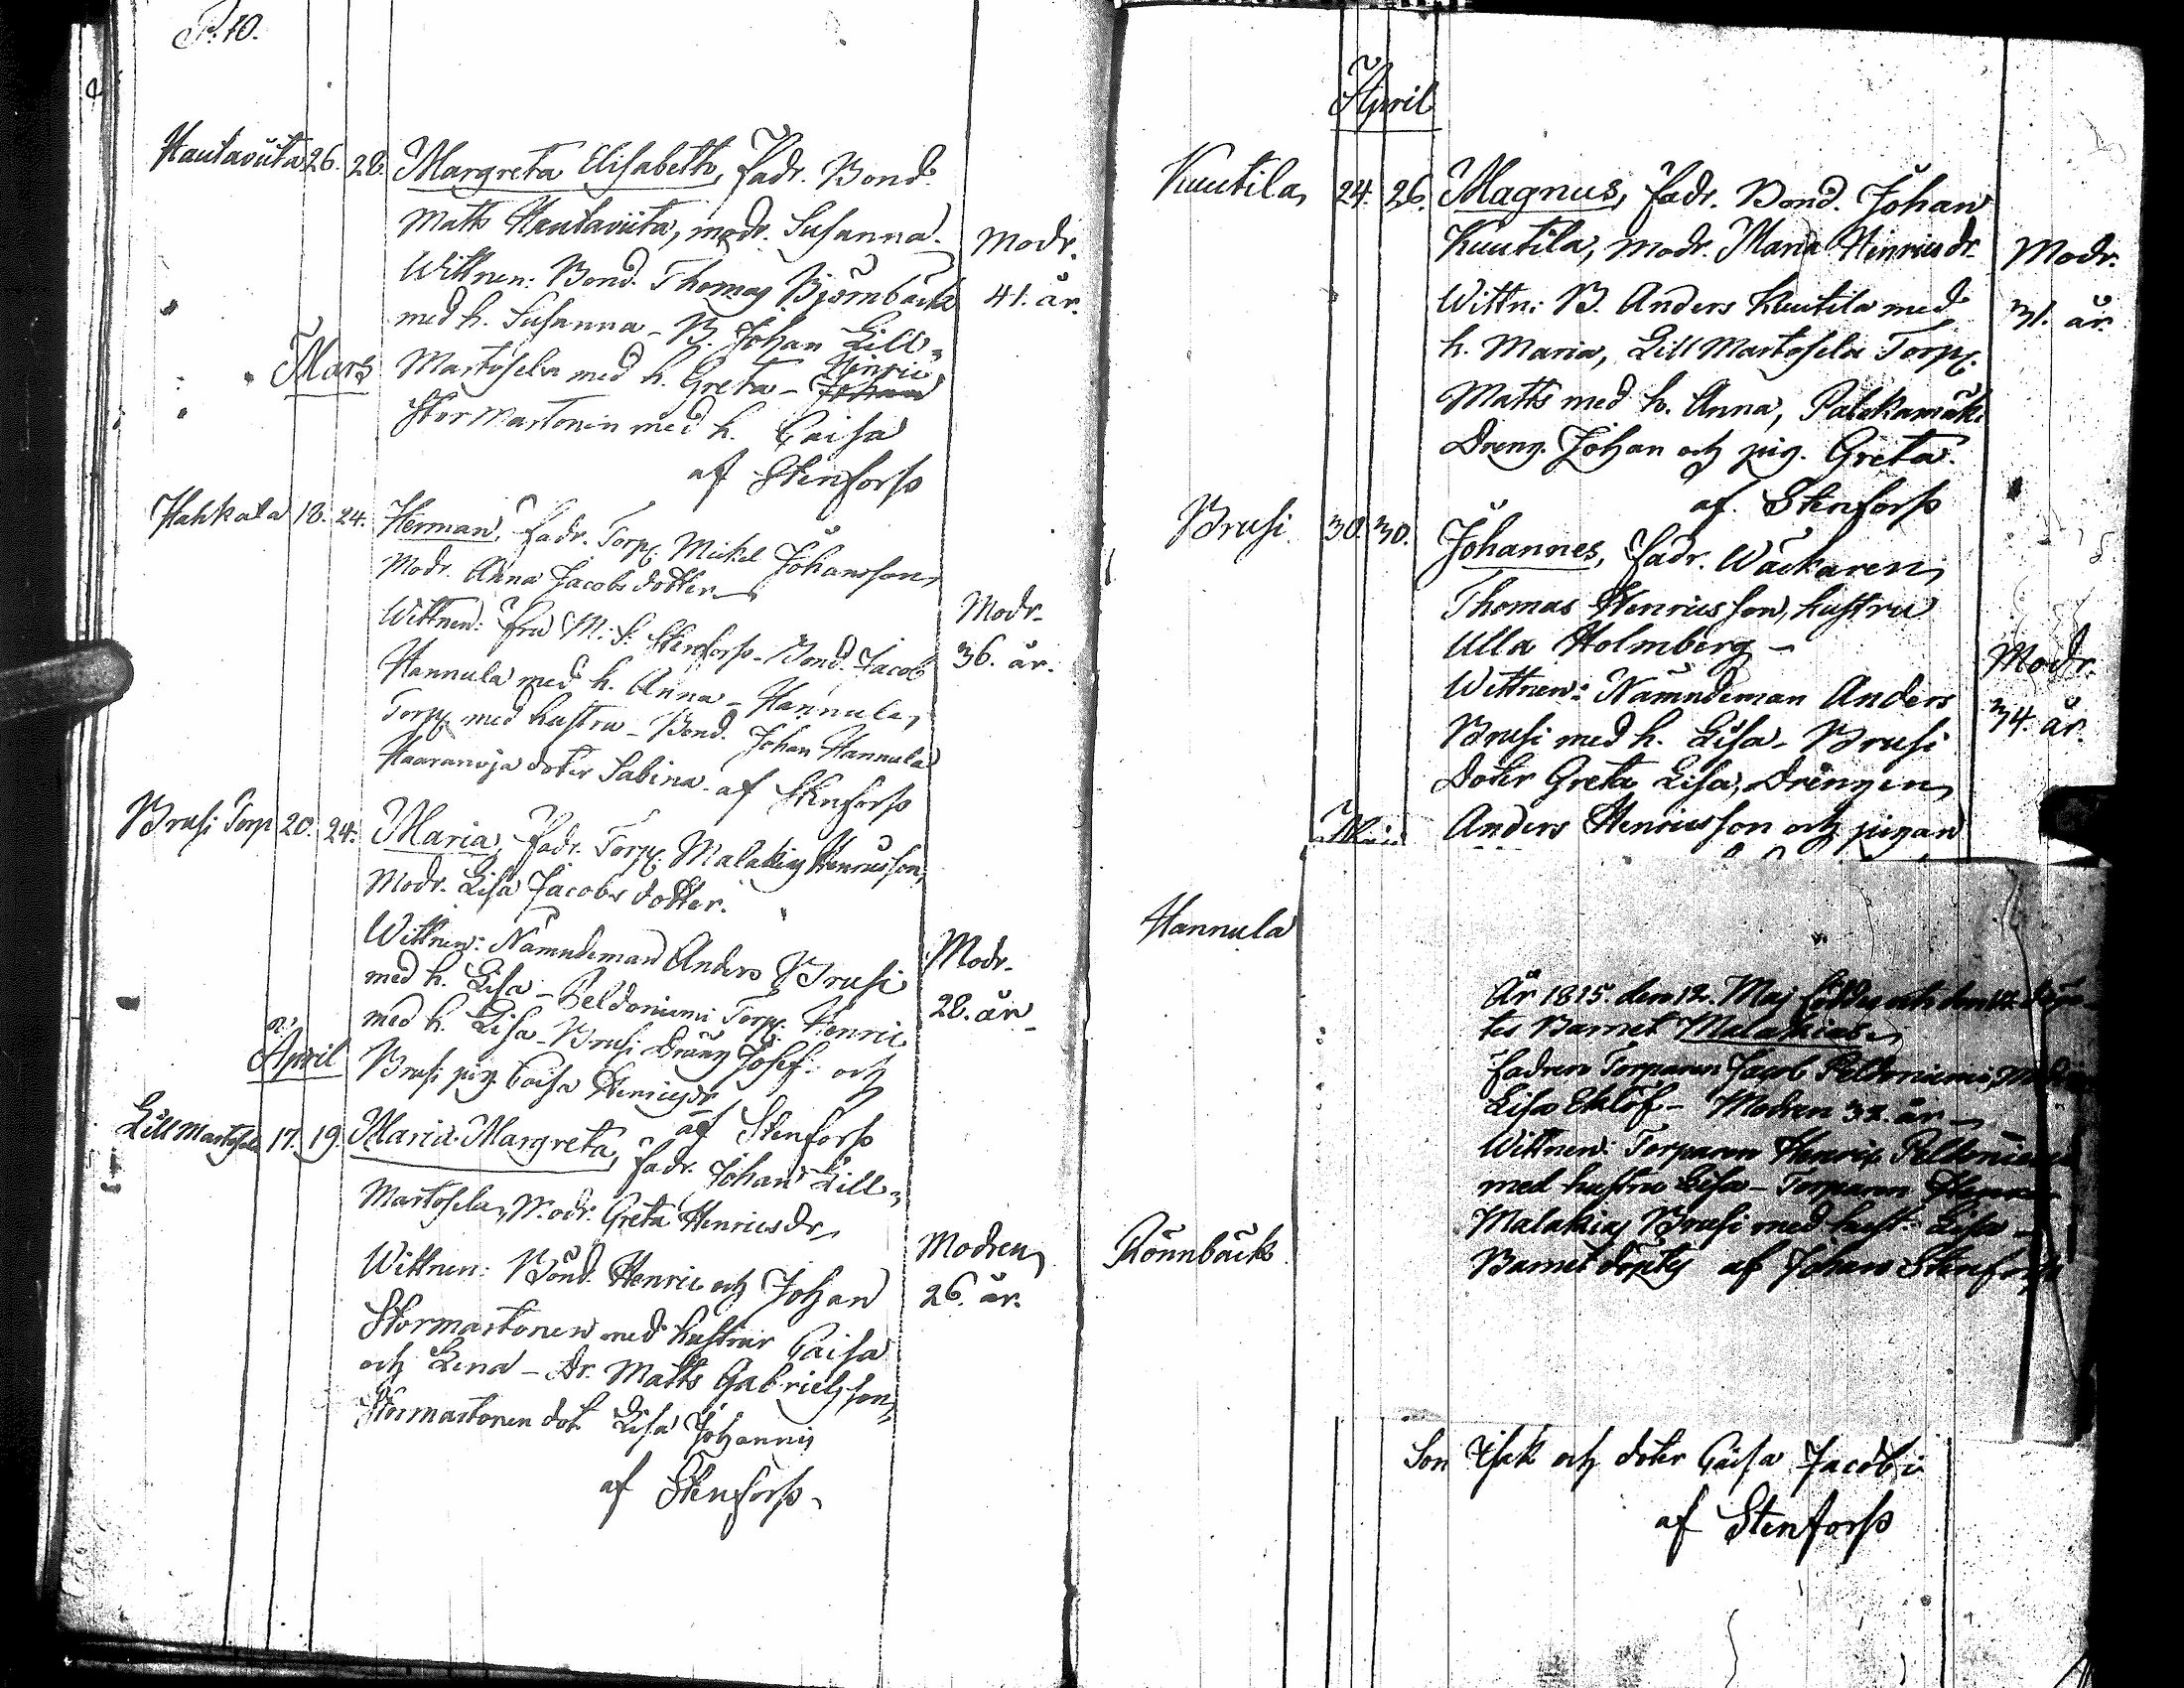 P. 10.
Hautaviita 26. 28. Margreta Elisabeth, Fadr. Bond.
Matts Hautaviita, modr. Susanna.
Wittnen: Bond. Thomas Björnbacka
med h. Susanna - B. Johan Lill-
Martosela med h. Greta - Johan Hinric
Stor Martonen med h. Caisa
af Stenforss
Modr.
41. år.
Mars
Hahkala 18. 24. Herman, Fadr. Torp. Mickel Johansson,
Modr. Anna Jacobs dotter
Wittnen: Fru M: S: Stenforss - Bond. Jacob
Hannula med h. Anna - Hannula
Torp. med hustru - Bond. Johan Hannula
Haaranoja doter Sabina - af Stenforss
Modr.
36. år.
Brusi Torp 20. 24. Maria, Fadr. Torp. Malakias Henricsson,
Modr. Lisa Jacobs dotter.
Wittnen: Nämndeman Anders Brusi
med h. Lisa - Peldoniemi Torp. Henric
med h. Lisa - Brusi Dräng Josef och
Brusi pig. Caisa Henricsdr
af Stenforss
Modr.
28. år
April
Lill Martosela 17. 19. Maria Margreta, Fadr. Johan Lill-
Martosela, Modr. Greta Henricsdr
Wittnen: Bond. Henric och Johan
Stormartonen med hustrur Caisa
och Lena - Dr. Matts Gabrielsson,
Stormartonen dot. Lisa Johannis
af Stenforss
Modren
26. år.
April
Kuutila 24. 26. Magnus, Fadr. Bond. Johan
Kuutila, Modr. Maria Hinricsdr
Wittn: B. Anders Kuutila med
h. Maria, Lill Martosela Torp.
Matts med h. Anna,
Dreng. Johan och pig. Greta.
af Stenforss
Modr.
31. år.
Brusi 30. 30. Johannes, Fadr. Wäckaren
Thomas Henricsson, hustru
Ulla Holmberg -
Wittnen: Nämndeman Anders
Brusi med h. Lisa - Brusi
Doter Greta Lisa, Drengen
Anders Henricsson och pigan
Modr.
34. år.
Maij
Hannula
År 1815 den 12. Maj föddes och den 14. döp-
tes Barnet Malakias
Fadren Torparen Jacob Peldoniemi,
Lisa Eklöf - Modren 32. år
Wittnen: Torparen Henric Peldoniemi
med hustru Lisa - Torparen
Malakias Brusi med hust: Lisa -
Barnet döptes af Johan Stenforss
Rönnbäck
Son Isak och doter Caisa Jacobi
af Stenforss